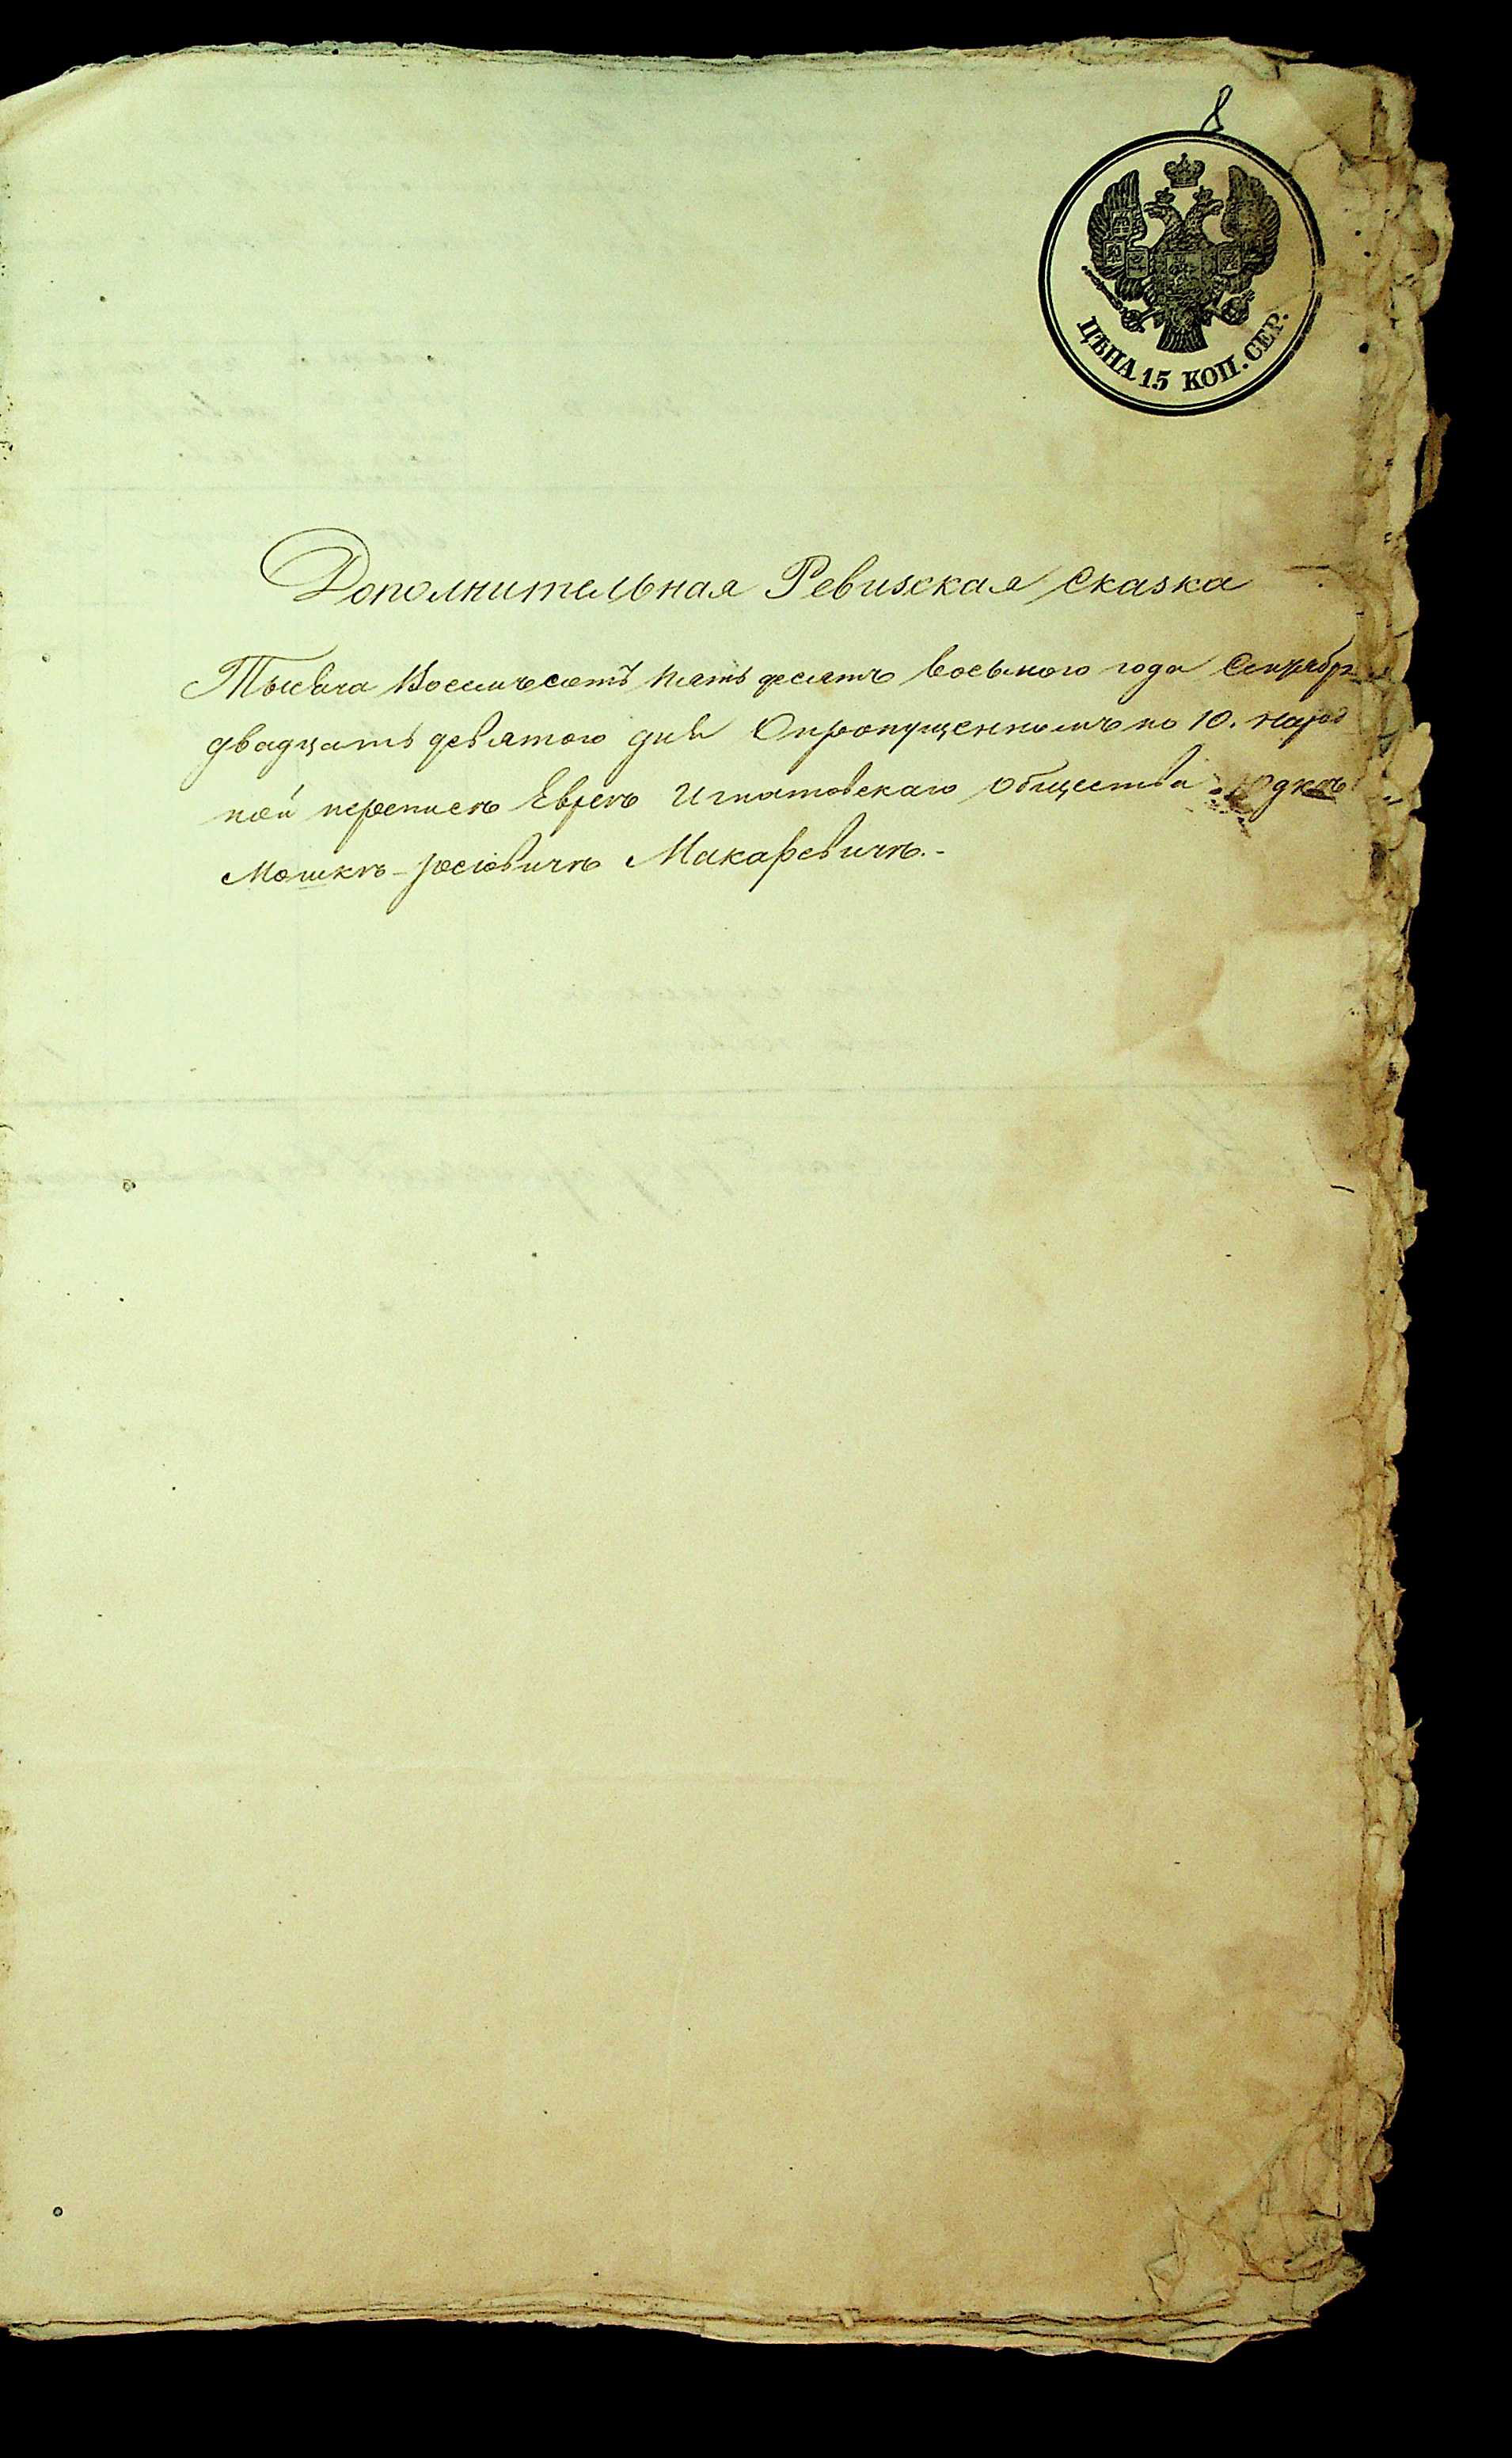 ЦѢНА 15 КОП. СЕР.
Дополнительная Ревизская Сказка
Тысяча Восемьсотъ пять десятъ восьмого года Сентября
двадцать девятого дня О пропущенномъ по 10. народ
ной переписѣ Евреѣ Игнатовскаго общества Юдкѣ
Мошкѣ-Іосіовичѣ Макаревичѣ.-